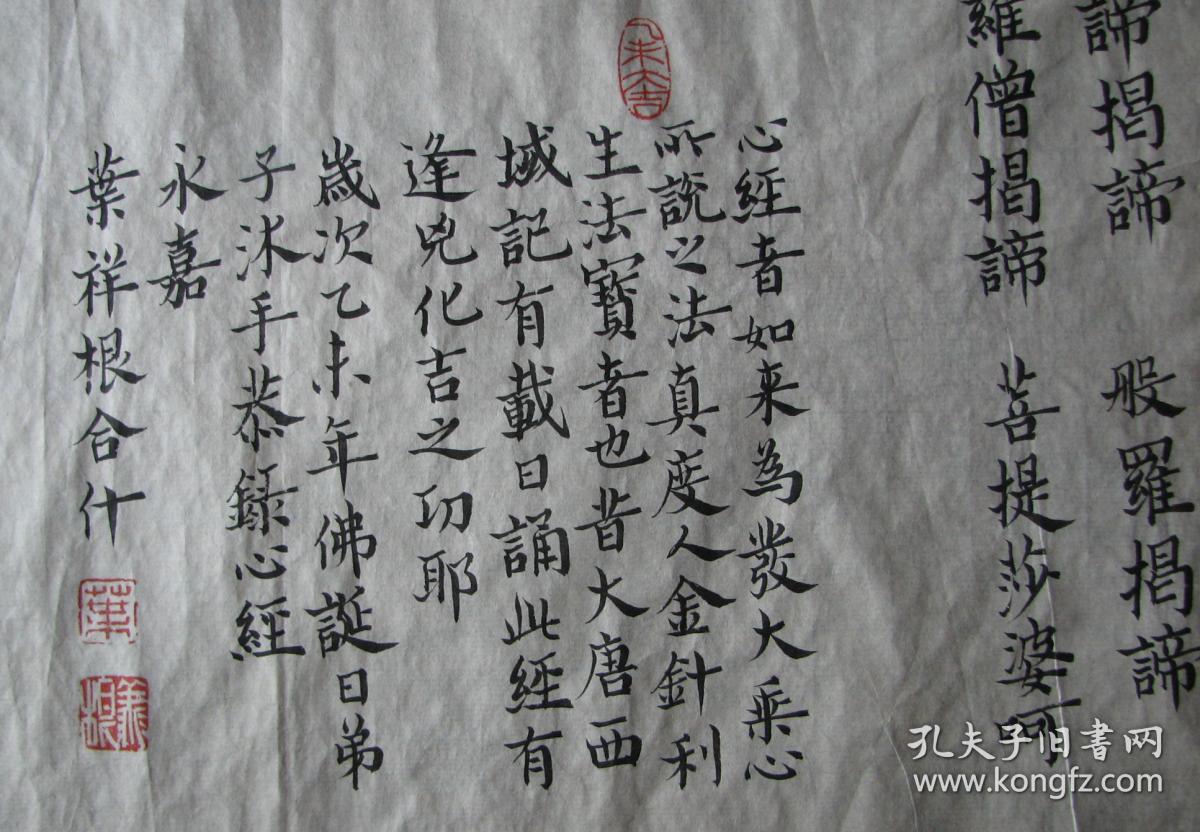 諦揭諦 般羅揭諦
羅僧揭諦 菩提莎婆呵
心經者如来為發大乘心
所說之法真度人金針利
生法寶者也昔大唐西
域記有載日誦此經有
逢兇化吉之功耶
歲次乙未年佛誕日弟
子沐手恭錄心經
永嘉
葉祥根合什
葉
孔夫子旧书网
www.kongfz.com